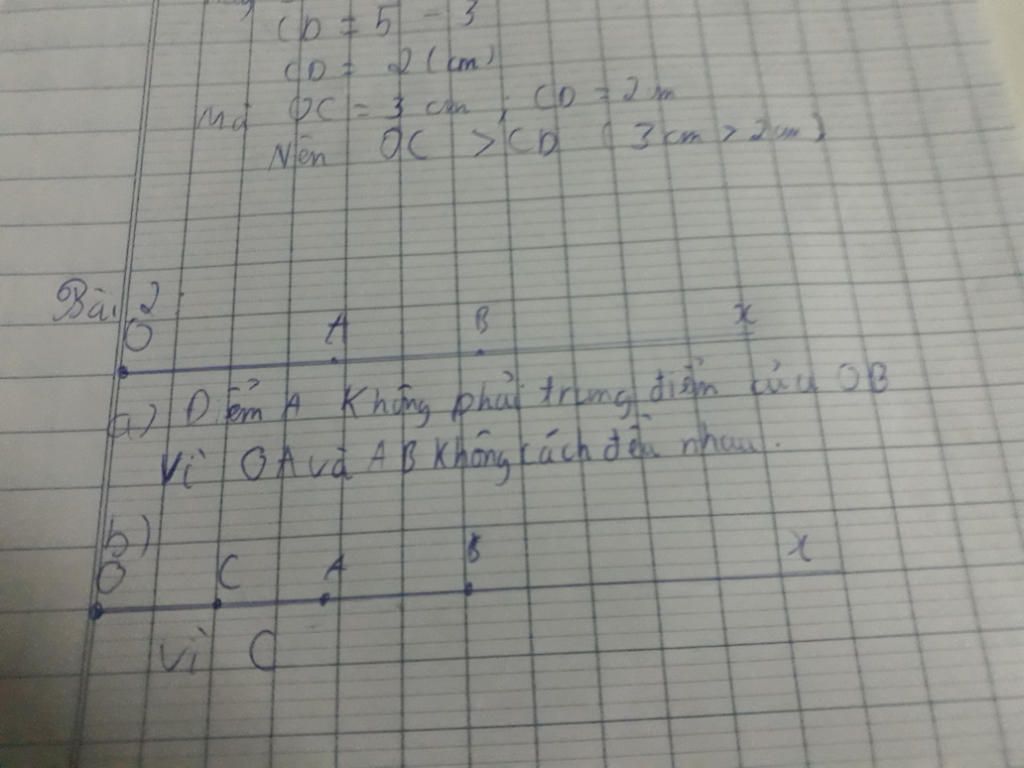 CD = 5 - 3
CD = 2 (cm)
Mà OC = 3 cm ; CD = 2 m
Nên OC > CD ( 3 cm > 2 cm )
Bài 2
O A B x
a) Điểm A Không phải trung điểm của OB
Vì OA và AB Không cách đều nhau.
b)
O C A B x
Vì C